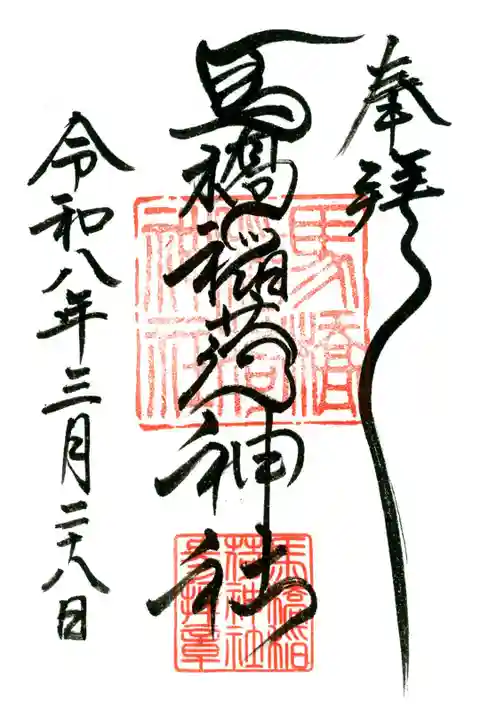 奉拝
馬橋稲荷神社
令和八年三月二十八日
馬橋
稲荷
神社
馬橋稲
荷神社